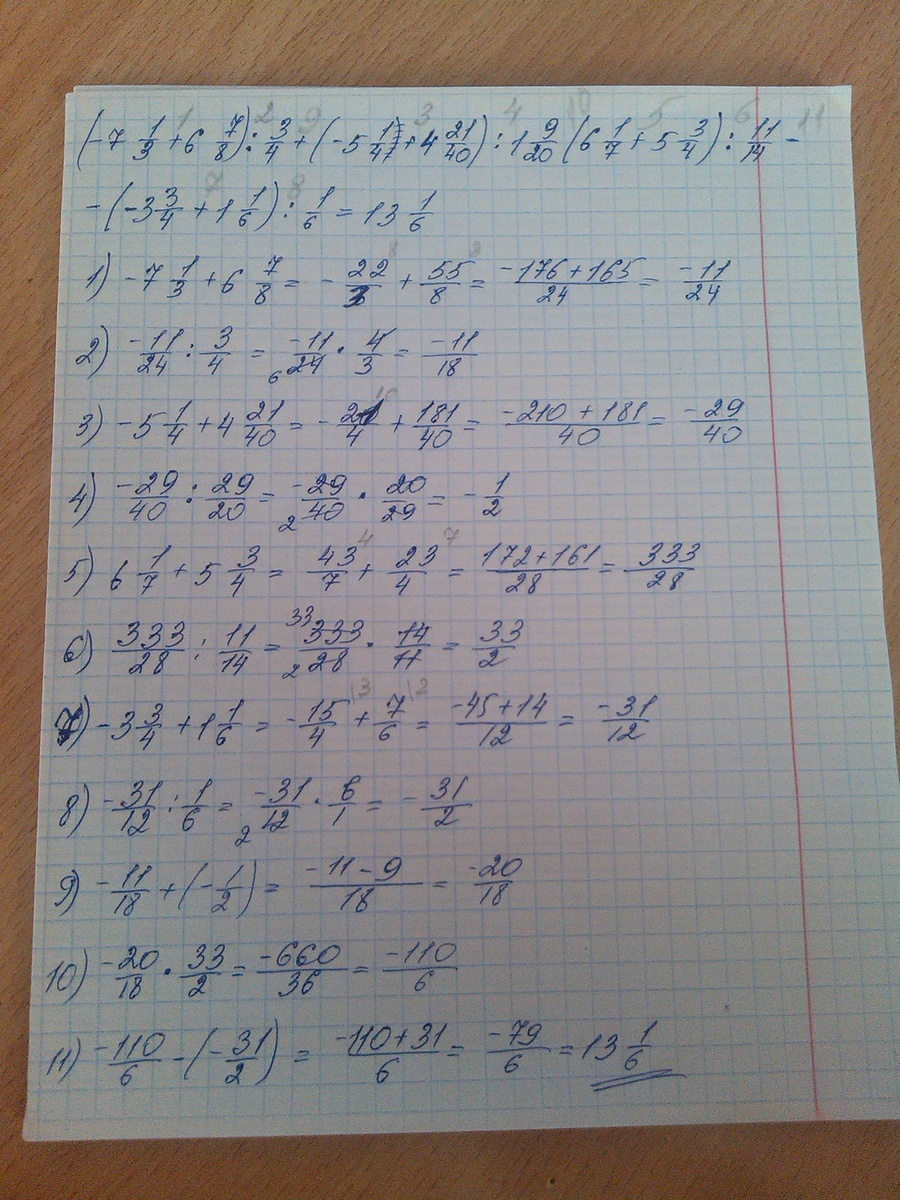 (-7 1/3 + 6 7/8) : 3/4 + (-5 1/4 + 4 21/40) : 1 9/20 (6 1/7 + 5 3/4) : 11/14 -
- (-3 3/4 + 1 1/6) : 1/6 = 13 1/6
1) -7 1/3 + 6 7/8 = - 22/3 + 55/8 = -176+165/24 = -11/24
2) -11/24 : 3/4 = -11/24 · 4/3 = -11/18
3) -5 1/4 + 4 21/40 = - 21/4 + 181/40 = -210+181/40 = -29/40
4) -29/40 : 29/20 = -29/40 · 20/29 = - 1/2
5) 6 1/7 + 5 3/4 = 43/7 + 23/4 = 172+161/28 = 333/28
6) 333/28 : 11/14 = 333/28 · 14/11 = 33/2
7) -3 3/4 + 1 1/6 = - 15/4 + 7/6 = -45+14/12 = -31/12
8) -31/12 : 1/6 = -31/12 · 6/1 = - 31/2
9) -11/18 + (- 1/2) = -11-9/18 = -20/18
10) -20/18 · 33/2 = -660/36 = -110/6
11) -110/6 - (- 31/2) = -110+31/6 = -79/6 = 13 1/6